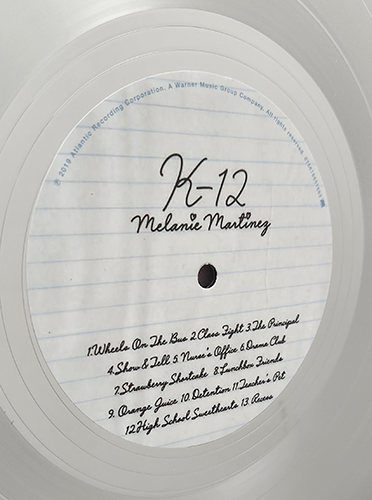 ℗ 2019 Atlantic Recording Corporation, A Warner Music Group Company. All rights reserved.
K-12
Melanie Martinez
1.Wheels On The Bus 2.Class Fight 3.The Principal
4.Show & Tell 5. Nurse's Office 6.Drama Club
7.Strawberry Shortcake 8.Lunchbox Friends
9. Orange Juice 10. Detention 11.Teacher's Pet
12.High School Sweethearts 13. Recess